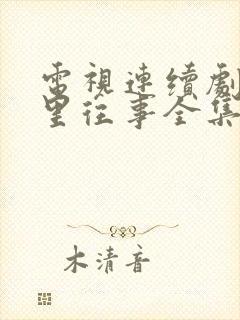 電視連續劇
里往事全集
木清音